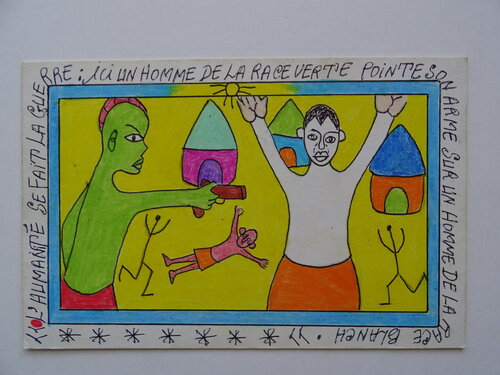 L'HUMANITÉ SE FAIT LA GUE
RRE : ici UN HOMME DE LA RACE VERTE POINTE SON
ARME SUR UN HOMME DE LA RA
CE BLANCH